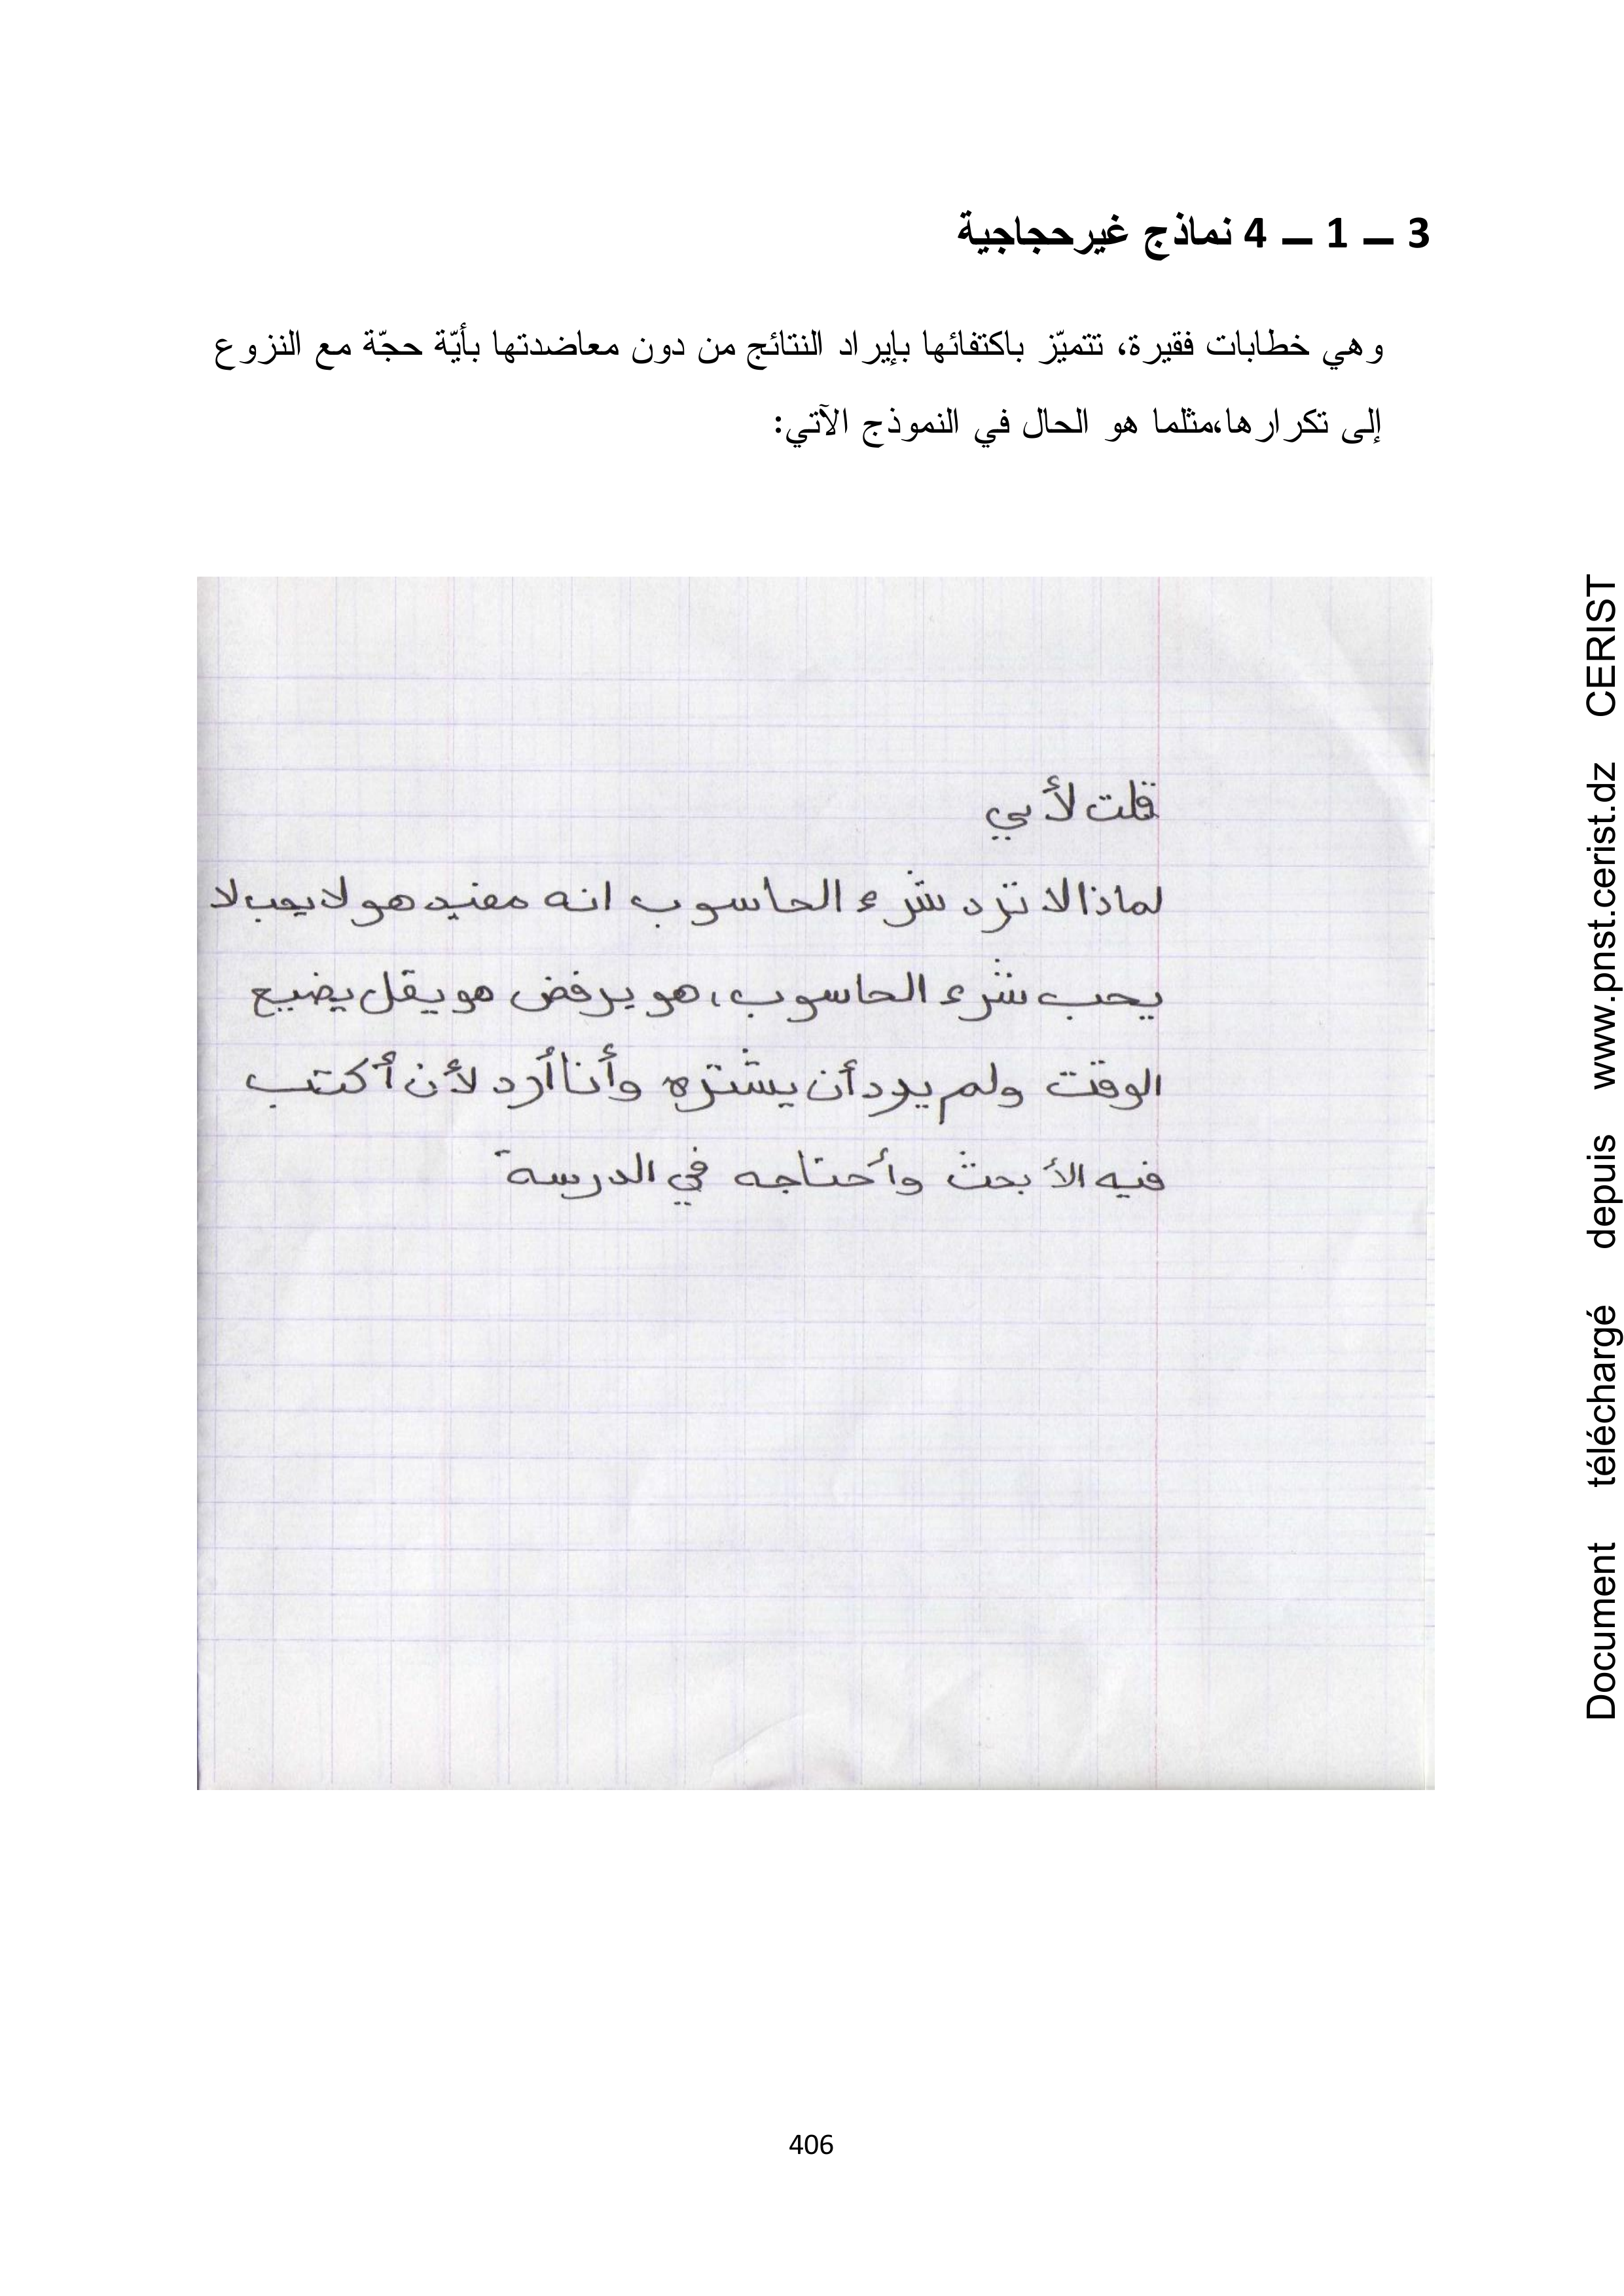 3 ـــ 1 ـــ 4 نماذج غيرحجاجية
وهي خطابات فقيرة، تتميّز باكتفائها بإيراد النتائج من دون معاضدتها بأيّة حجّة مع النزوع
إلى تكرارها،مثلما هو الحال في النموذج الآتي:
قلت لأبي
لماذا لا ترد شرء الحاسوب انه مفيد هو لا يحب لا
يحب شرء الحاسوب، هو يرفض هو يقل يضيع
الوقت ولم يرد أن يشتره وأنا أرد لأن أكتب
فيه الأبحث وأحتاجه في الدرسة
406
Document téléchargé depuis www.pnst.cerist.dz CERIST